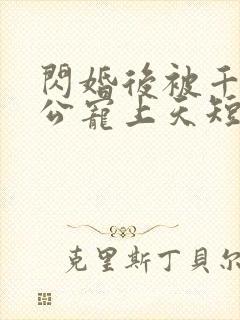 閃婚後被千
公寵上天短
克里斯丁貝爾